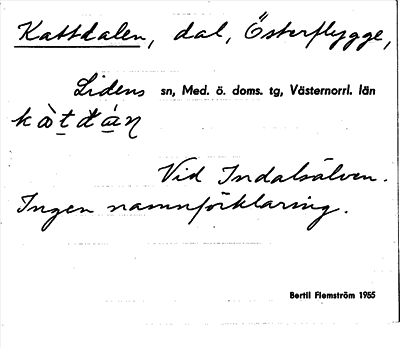 Kattdalen, dal, Österflygge,
Lidens sn, Med. ö. doms. tg, Västernorrl. län
kàt̲đá̲n
Vid Indalsälven.
Ingen namnförklaring.
Bertil Flemström 1955